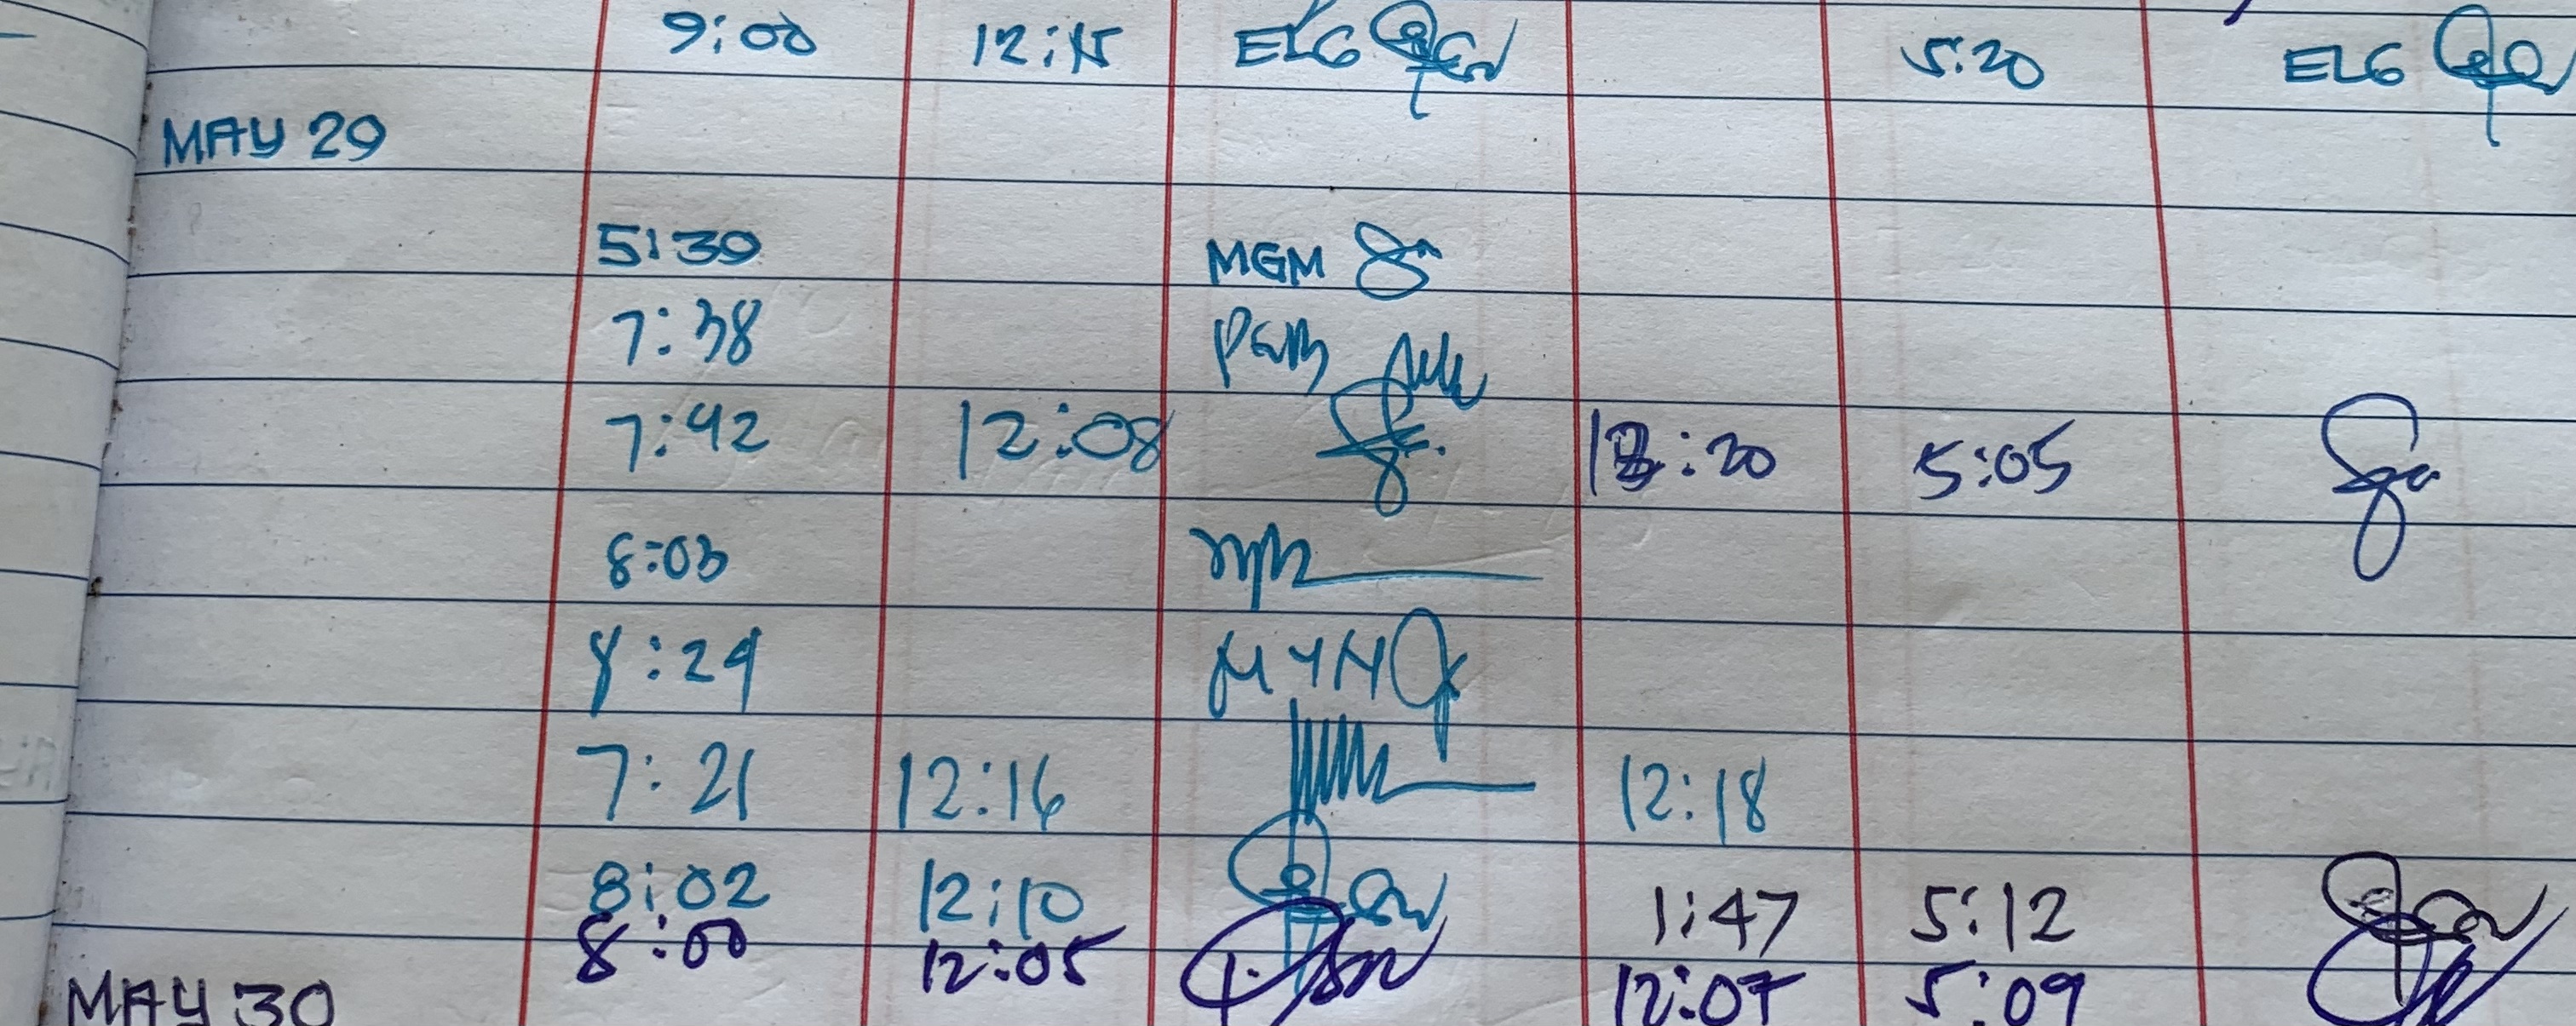 9:00 12:15 ELG 5:20 ELG
MAY 29
5:30 MGM
7:38 PGM
7:42 12:08 12:20 5:05
8:03
8:24 MYN
7:21 12:16 12:18
8:02 12:10 1:47 5:12
8:00 12:05 12:07 5:09
MAY 30